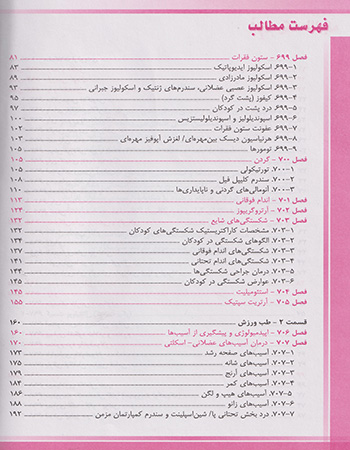 فهرست مطالب
فصل ۶۹۹ - ستون فقرات ۸۱
۶۹۹-۱. اسکولیوز ایدیوپاتیک ۸۳
۶۹۹-۲. اسکولیوز مادرزادی ۸۹
۶۹۹-۳. اسکولیوز عصبی عضلانی، سندرم‌های ژنتیک و اسکولیوز جبرانی ۹۳
۶۹۹-۴. کیفوز (پشت گرد) ۹۵
۶۹۹-۵. درد پشت در کودکان ۹۷
۶۹۹-۶. اسپوندیلولیز و اسپوندیلولیستزیس ۱۰۰
۶۹۹-۷. عفونت ستون فقرات ۱۰۲
۶۹۹-۸. هرنیاسیون دیسک بین‌مهره‌ای/ لغزش آپوفیز مهره‌ای ۱۰۳
۶۹۹-۹. تومورها ۱۰۵
فصل ۷۰۰ - گردن ۱۰۵
۷۰۰-۱. تورتیکولی ۱۰۵
۷۰۰-۲. سندرم کلیپل فیل ۱۰۸
۷۰۰-۳. آنومالی‌های گردنی و ناپایداری‌ها ۱۱۰
فصل ۷۰۱ - اندام فوقانی ۱۱۳
فصل ۷۰۲ - آرتروگریپوز ۱۲۴
فصل ۷۰۳ - شکستگی‌های شایع ۱۳۲
۷۰۳-۱. مشخصات کاراکتریستیک شکستگی‌های کودکان ۱۳۲
۷۰۳-۲. الگوهای شکستگی در کودکان ۱۳۴
۷۰۳-۳. شکستگی‌های اندام فوقانی ۱۳۷
۷۰۳-۴. شکستگی‌های اندام تحتانی ۱۴۱
۷۰۳-۵. درمان جراحی شکستگی‌ها ۱۴۴
۷۰۳-۶. عوارض شکستگی در کودکان ۱۴۵
فصل ۷۰۴ - استئومیلیت ۱۴۵
فصل ۷۰۵ - آرتریت سپتیک ۱۵۵
قسمت ۲ - طب ورزش ۱۶۰
فصل ۷۰۶ - اپیدمیولوژی و پیشگیری از آسیب‌ها ۱۶۰
فصل ۷۰۷ - درمان آسیب‌های عضلانی- اسکلتی ۱۷۰
۷۰۷-۱. آسیب‌های صفحه رشد ۱۷۳
۷۰۷-۲. آسیب‌های شانه ۱۷۵
۷۰۷-۳. آسیب‌های آرنج ۱۷۹
۷۰۷-۴. آسیب‌های کمر ۱۸۴
۷۰۷-۵. آسیب‌های هیپ و لگن ۱۸۶
۷۰۷-۶. آسیب‌های زانو ۱۸۸
۷۰۷-۷. درد بخش تحتانی پا/ شین‌اسپلینت و سندرم کمپارتمان مزمن ۱۹۲